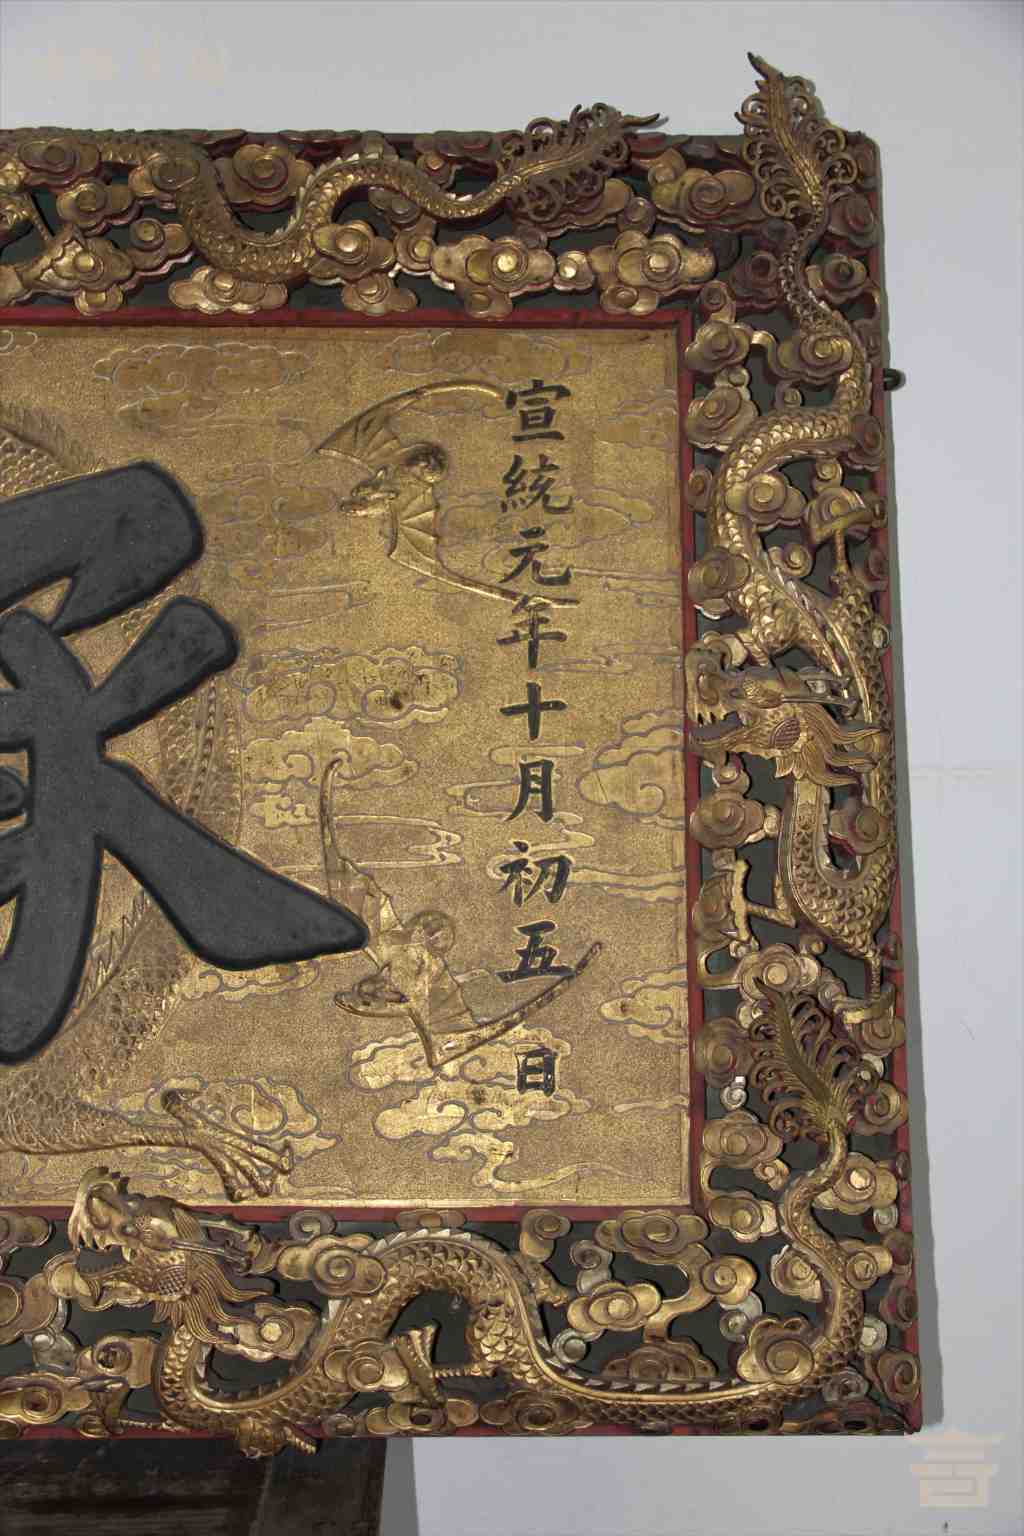 宣統元年十月初五日
承